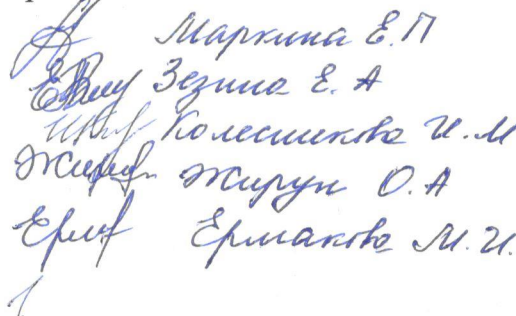 Маркина Е.П
Зезина Е.А
Колесникова И.М
Жирун О.А
Ермакова М.И.